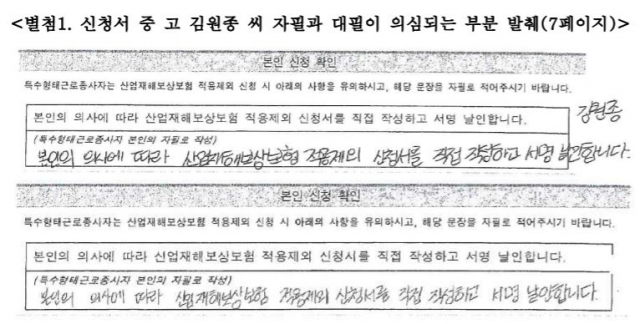 <별첨1. 신청서 중 고 김원종 씨 자필과 대필이 의심되는 부분 발췌(7페이지)>
본인 신청 확인
특수형태근로종사자는 산업재해보상보험 적용제외 신청 시 아래의 사항을 유의하시고, 해당 문장을 자필로 적어주시기 바랍니다.
본인의 의사에 따라 산업재해보상보험 적용제외 신청서를 직접 작성하고 서명 날인합니다.
김원종
(특수형태근로종사자 본인의 자필로 작성)
본인의 의사에 따라 산업재해보상보험 적용제외 신청서를 직접 작성하고 서명 날인합니다.
본인 신청 확인
특수형태근로종사자는 산업재해보상보험 적용제외 신청 시 아래의 사항을 유의하시고, 해당 문장을 자필로 적어주시기 바랍니다.
본인의 의사에 따라 산업재해보상보험 적용제외 신청서를 직접 작성하고 서명 날인합니다.
(특수형태근로종사자 본인의 자필로 작성)
본인의 의사에 따라 산업재해보상보험 적용제외 신청서를 직접 작성하고 서명 날인합니다.